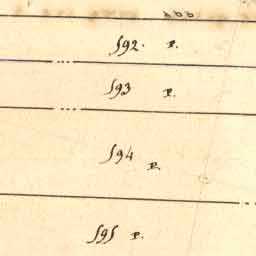 592. P.
593 P.
594 P.
595 P.